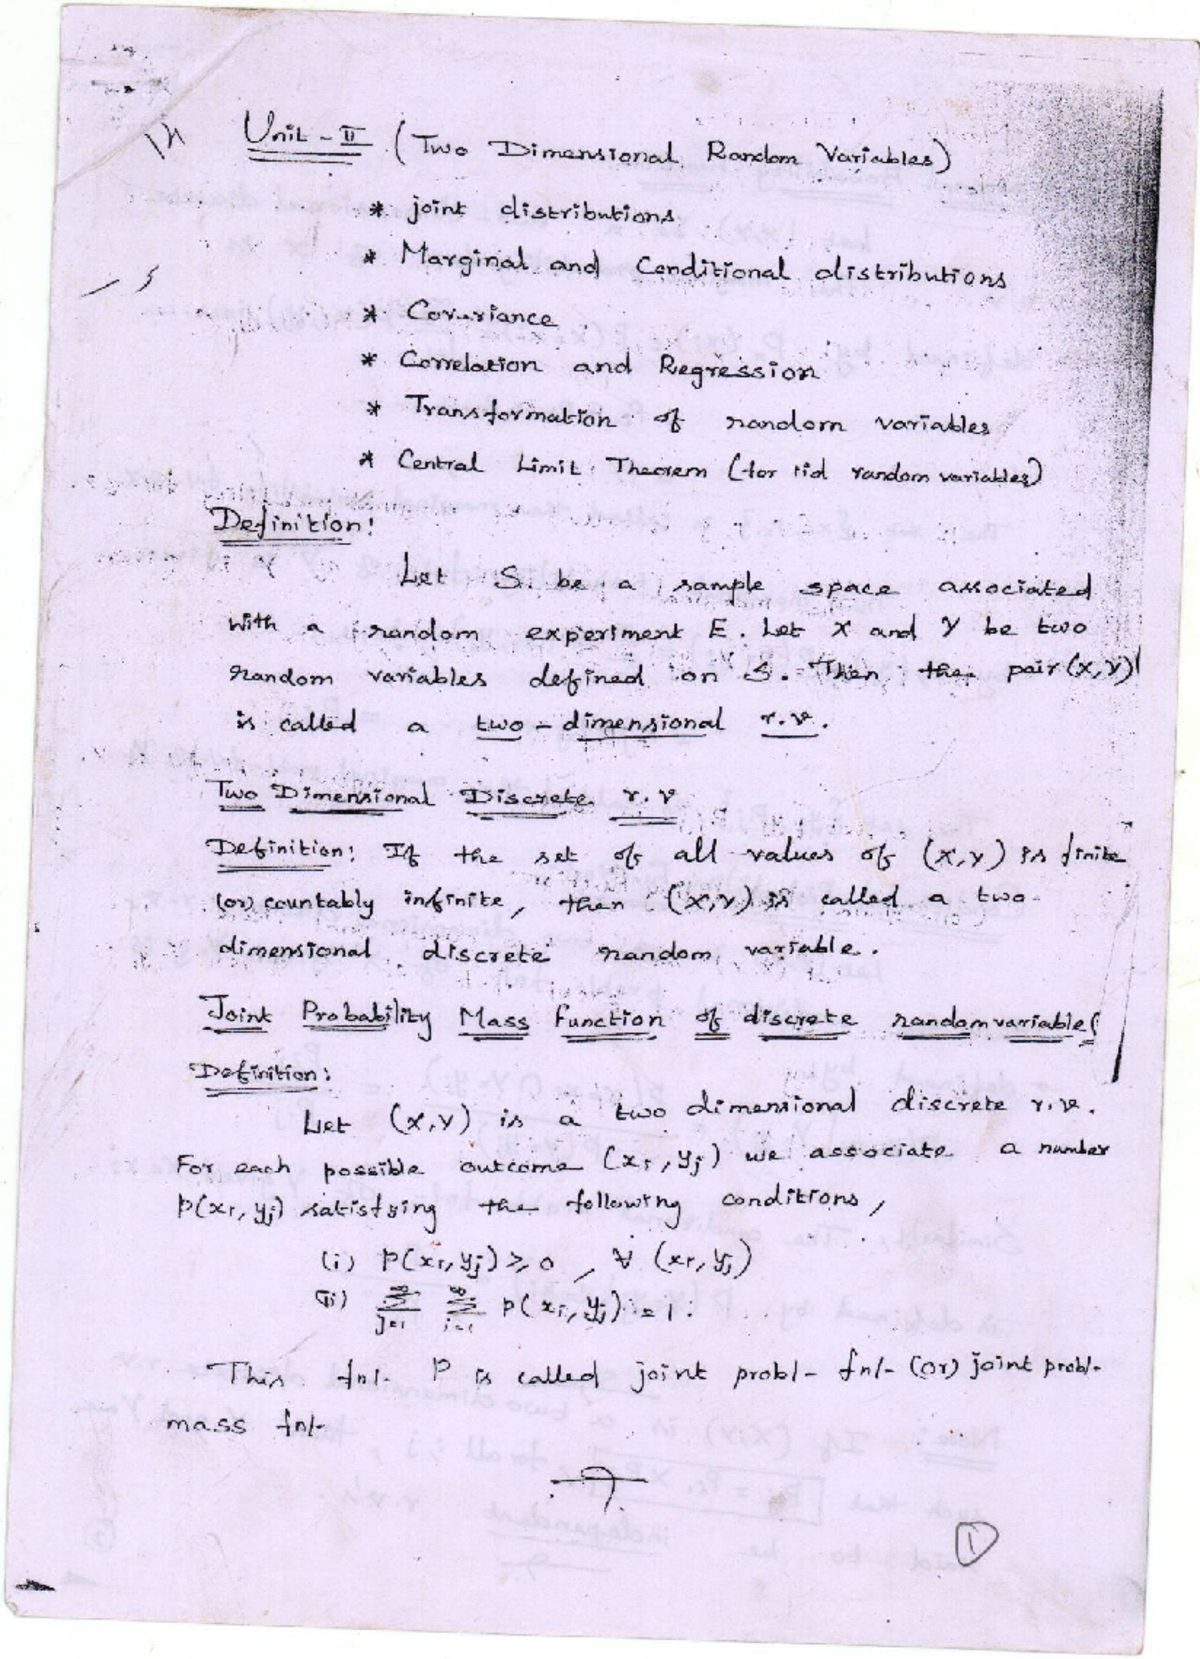 Unit - II (Two Dimensional Random Variables)
* joint distributions
* Marginal and Conditional distributions
* Covariance
* Correlation and Regression
* Transformation of random variables
* Central Limit Theorem (for iid random variables)
Definition:
Let S be a sample space associated
with a random experiment E. Let X and Y be two
random variables defined on S. Then the pair (X,Y)
is called a two-dimensional r.v.
Two Dimensional Discrete r.v
Definition: If the set of all values of (X,Y) is finite
(or) countably infinite, then (X,Y) is called a two-
dimensional discrete random variable.
Joint Probability Mass Function of discrete random variables
Definition:
Let (X,Y) is a two dimensional discrete r.v.
For each possible outcome (xi, yj) we associate a number
P(xi, yj) satisfying the following conditions,
(i) P(xi, yj) ≥ 0, ∀ (xi, yj)
(ii) ∞Σj=1 ∞Σi=1 P(xi, yj) = 1.
This fn/- P is called joint probl- fn/- (or) joint probl-
mass fn/-
1